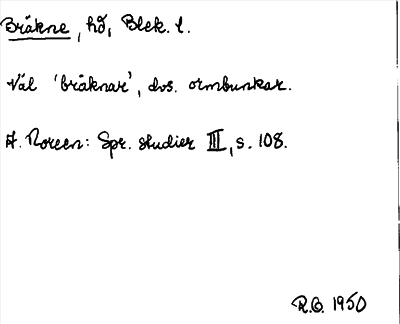 Bräkne, hd, Blek. l.
Väl 'bräknar', dvs. ormbunkar.
A. Noreen: Spr. studier III, s. 108.
R.O. 1950